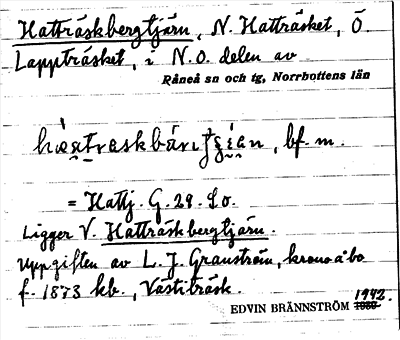 Hatträskbergtjärn, N. Hatträsket, Ö.
Lappträsket, i N.O. delen av
Råneå sn och tg, Norrbottens län
bf. m.
= Hattj. G. 29. S o.
Ligger V. Hatträskbergtjärn.
Uppgiften av L. J. Granström, kronoåbo
f. 1873 kb., Västiträsk.
EDVIN BRÄNNSTRÖM 1942.